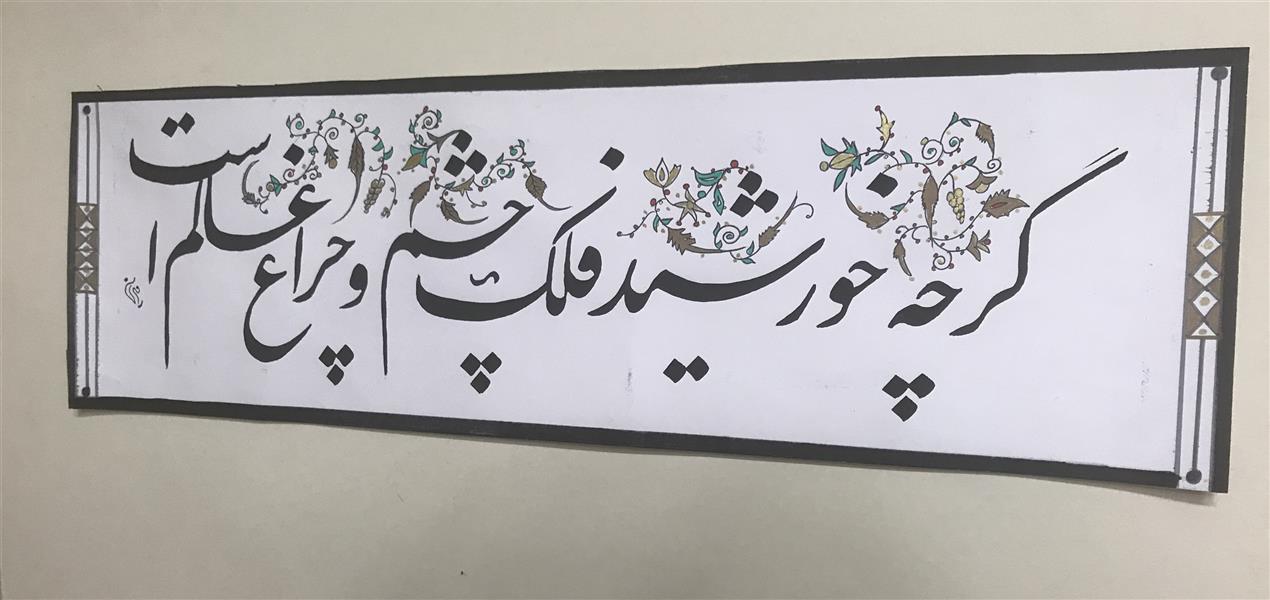 گرچه خورشید فلک چشم و چراغ عالم است